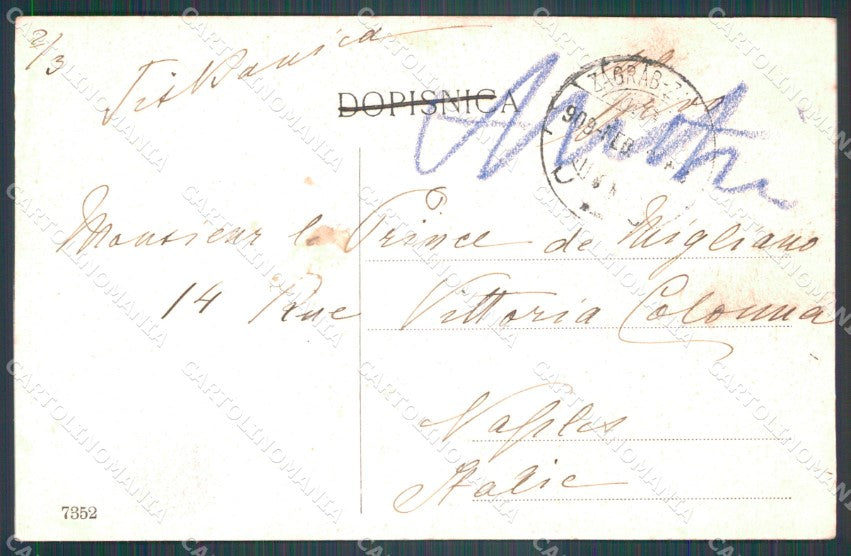 2/3
Tiskanica
DOPISNICA
ZAGRAB-Z
909 FEB
Monsieur le Prince de Migliano
14 Rue Vittoria Colonna
Naples
Italie
7352
CARTOLINOMANIA